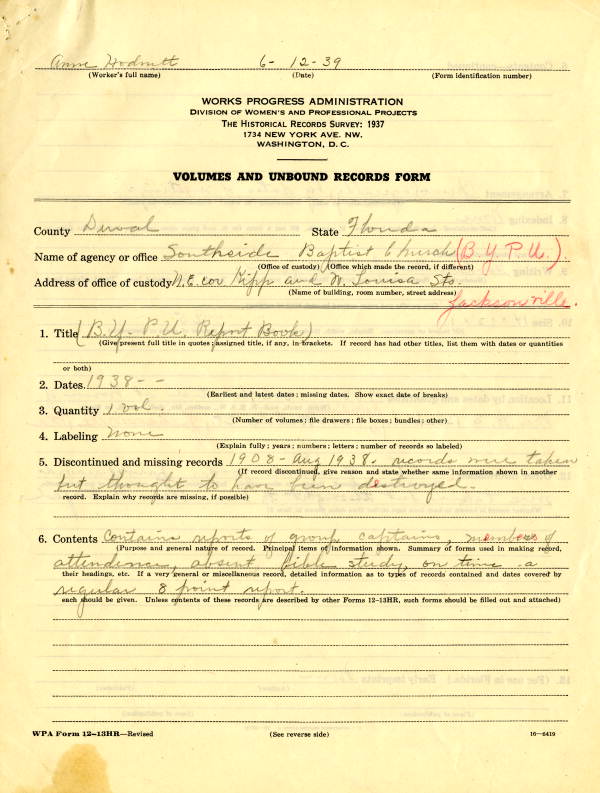 Anne Hodnutt 6-12-39
(Worker's full name) (Date) (Form identification number)
WORKS PROGRESS ADMINISTRATION
DIVISION OF WOMEN'S AND PROFESSIONAL PROJECTS
THE HISTORICAL RECORDS SURVEY: 1937
1734 NEW YORK AVE. NW.
WASHINGTON, D. C.
VOLUMES AND UNBOUND RECORDS FORM
County Duval State Florida
Name of agency or office Southside Baptist Church (B.Y.P.U.)
(Office of custody) (Office which made the record, if different)
Address of office of custody N.E. cor Kipp and N. Louisa Sts.
(Name of building, room number, street address)
Jacksonville.
1. Title (B.Y.P.U. Report Book)
(Give present full title in quotes; assigned title, if any, in brackets. If record has had other titles, list them with dates or quantities
or both)
2. Dates. 1938--
(Earliest and latest dates; missing dates. Show exact date of breaks)
3. Quantity 1 vol.
(Number of volumes; file drawers; file boxes; bundles; other)
4. Labeling none
(Explain fully; years; numbers; letters; number of records so labeled)
5. Discontinued and missing records 1908-Aug 1938. records were taken
(If record discontinued, give reason and state whether same information shown in another
but thought to have been destroyed.
record. Explain why records are missing, if possible)
6. Contents Contains reports of group captains, members of
(Purpose and general nature of record. Principal items of information shown. Summary of forms used in making record,
attendence, absent Bible study, on time a
their headings, etc. If a very general or miscellaneous record, detailed information as to types of records contained and dates covered by
regular 8 point report.
each should be given. Unless contents of these records are described by other Forms 12-13HR, such forms should be filled out and attached)
WPA Form 12-13HR—Revised (See reverse side) 16-6419